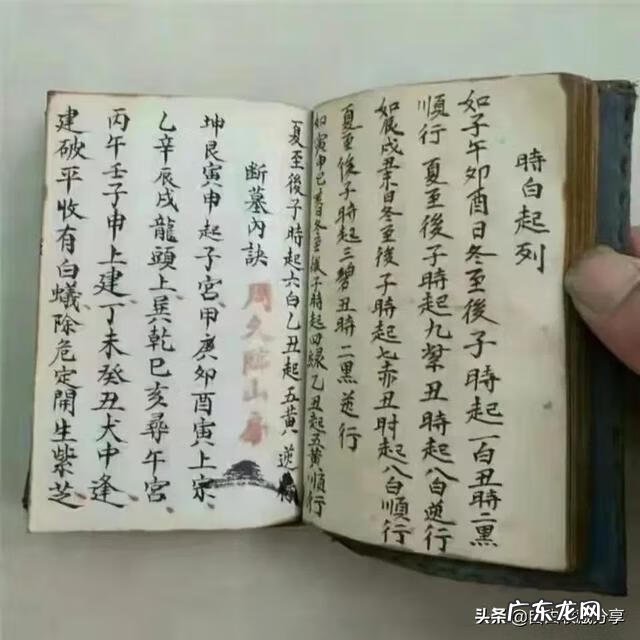 時白起列
如子午卯酉日冬至後子時起一白丑時二黑
順行夏至後子時起九紫丑時起八白逆行
如辰戌丑未日冬至後子時起七赤丑时起八白順行
夏至後子時起三碧丑時二黑逆行
如寅申巳亥日冬至後子時起四緑乙丑起五黄順行
夏至後子時起六白乙丑起五黄逆
断墓内訣
坤艮寅申起子宮甲庚卯酉寅上宗
乙辛辰戌龍頭上巽乾巳亥尋午宮
丙午壬子申上建丁未癸丑犬中逢
建破平收有白蟻除危定開生紫芝
周久
山
头条
广东龙网
分享